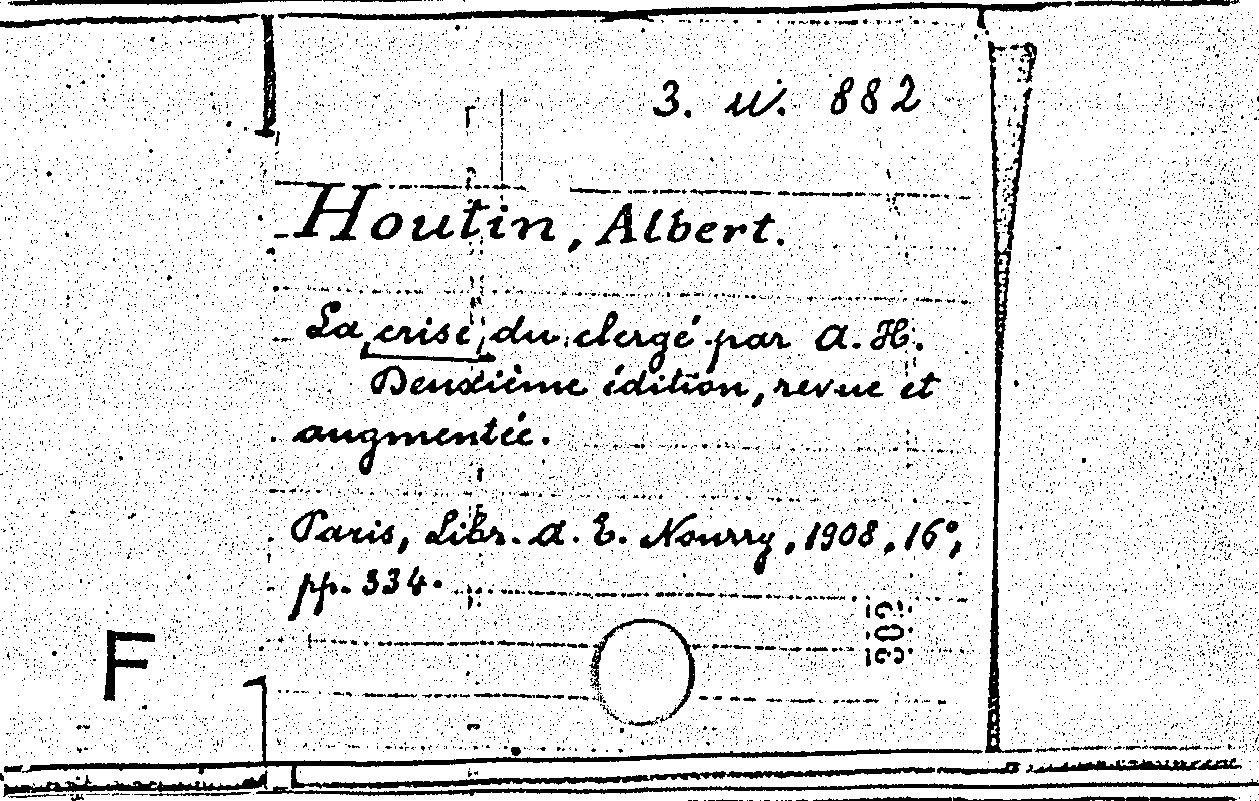 3. W. 882
Houtin, Albert.
La crise du clergé par A. H.
Deuxième édition, revue et
augmentée.
Paris, Libr. A. E. Nourry, 1908, 16°,
pp. 334.
302
F